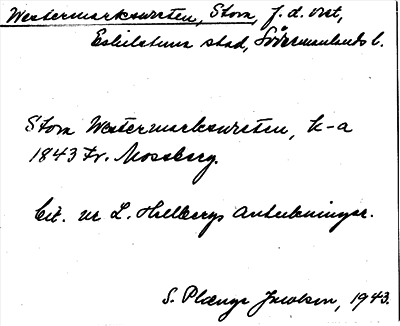 Westermarkswreten, Stora, f. d. vret,
Eskilstuna stad, Södermanlands l.
Stora Westermarkswreten, k-a
1843 Fr. Mossberg.
Cit. ur L. Hellbergs anteckningar.
S. Plænge Jacobson, 1943.